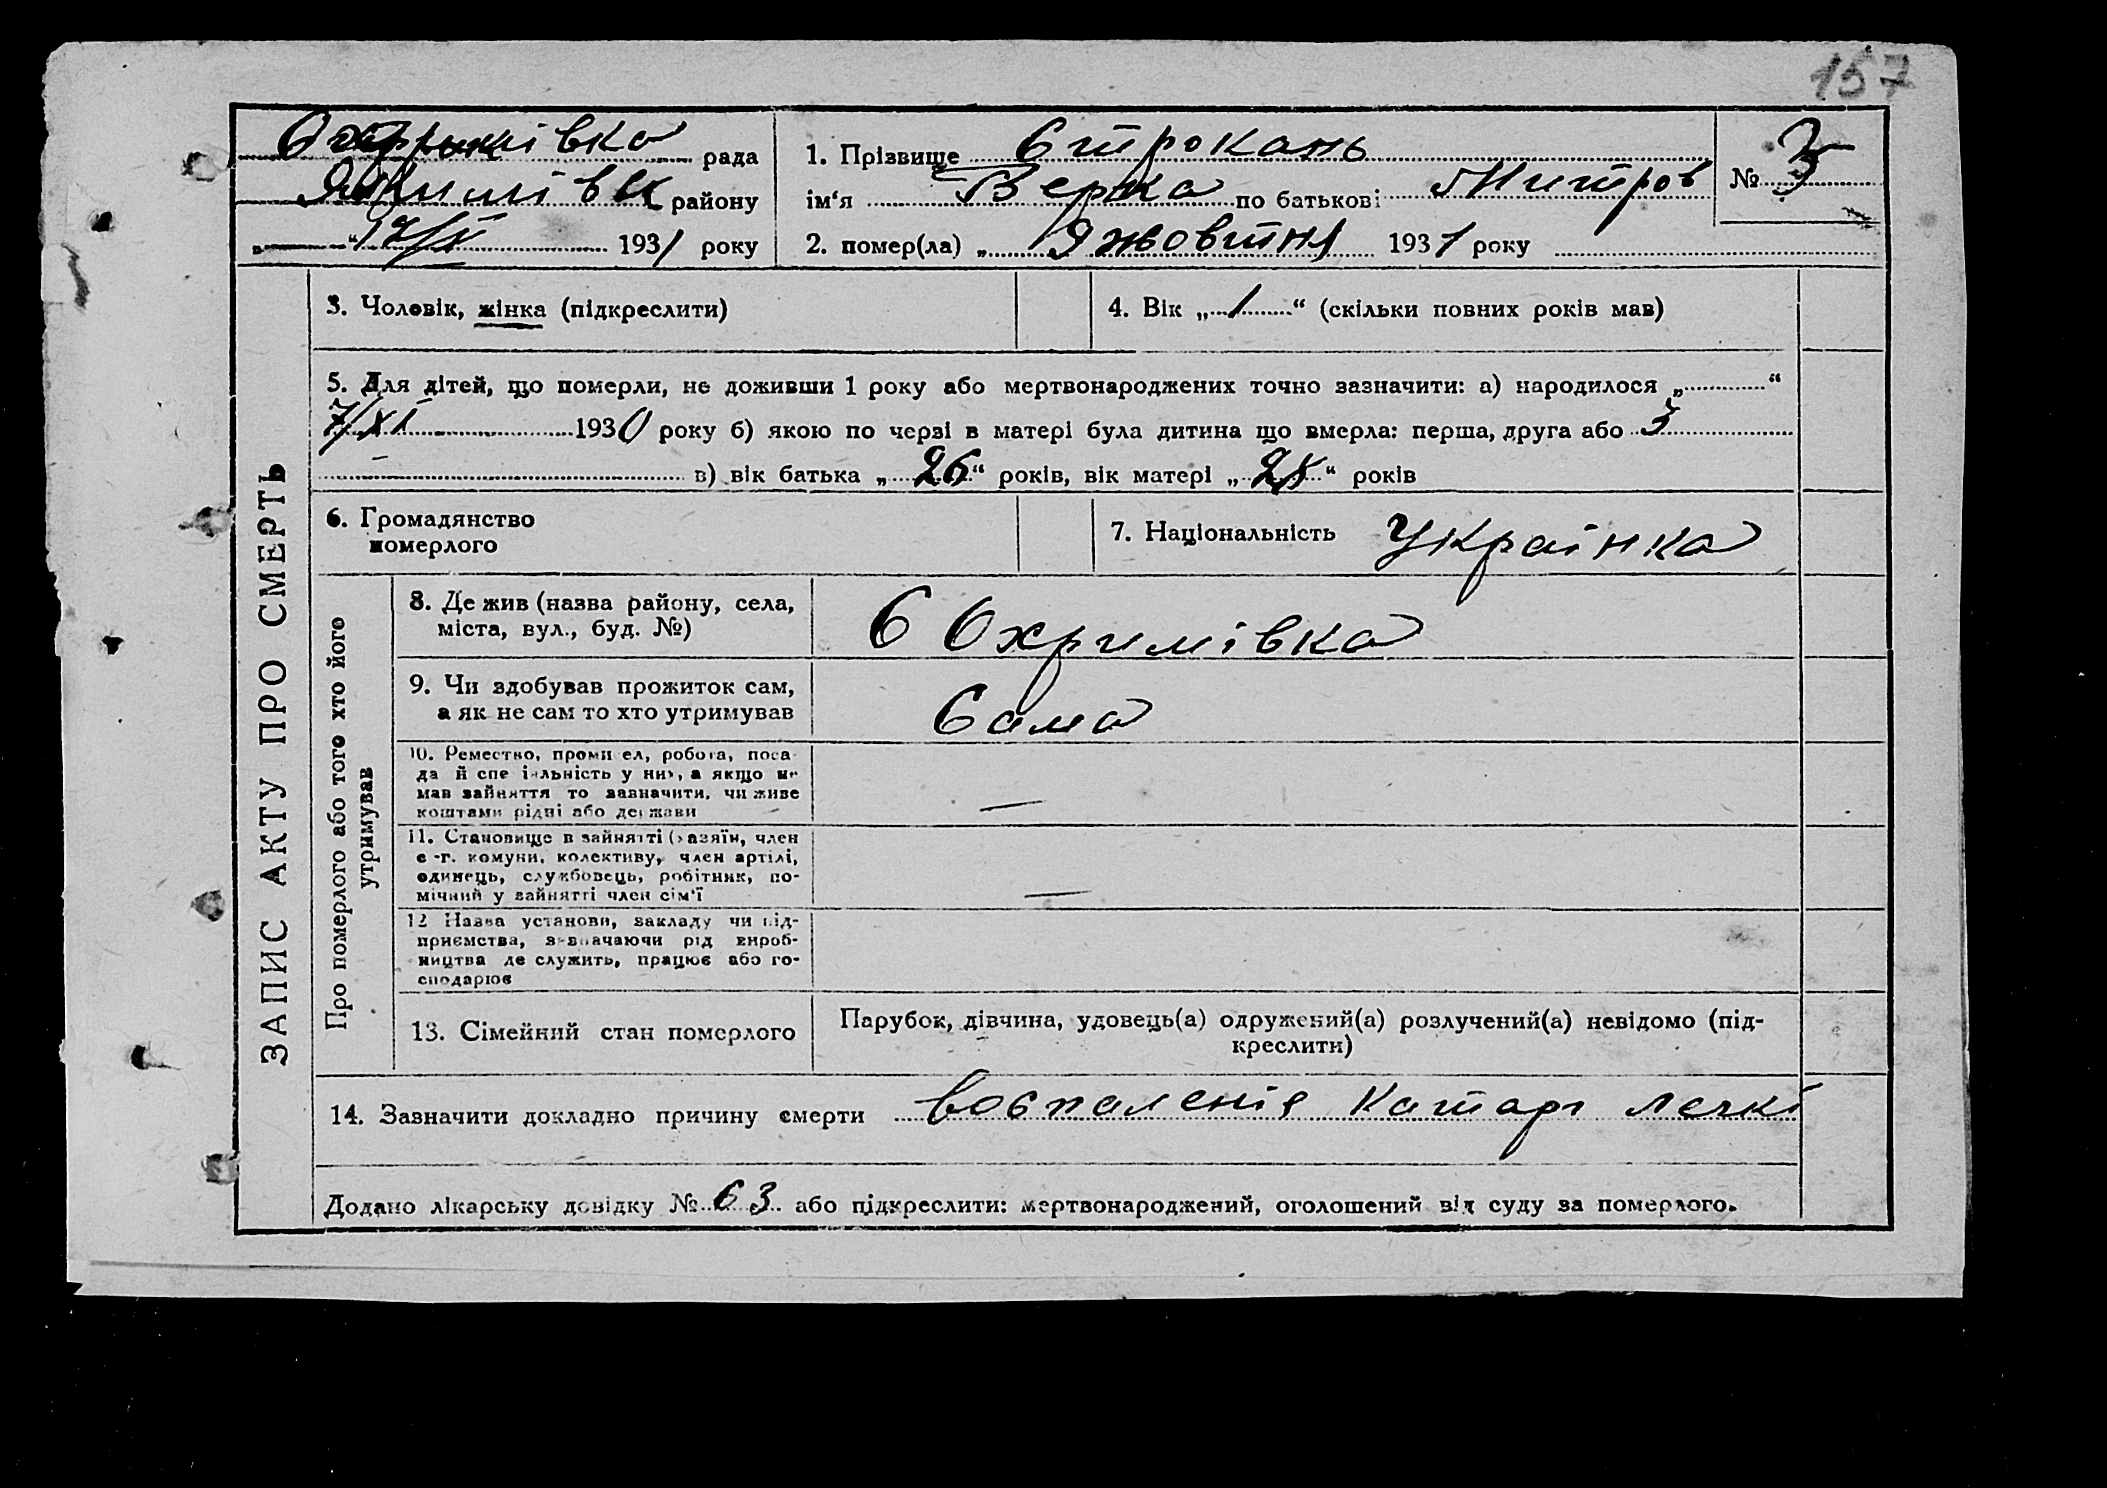 157
Охримівка рада
Якимівськ району
„ “ 12/X 1931 року
1. Прізвище Строкань
ім‘я Верка по батькові Митров
2. помер(ла) „ 9 жовтня 1931 року
№ 3
ЗАПИС АКТУ ПРО СМЕРТЬ
3. Чоловік, жінка (підкреслити)
4. Вік „ 1 “ (скільки повних років мав)
5. Для дітей, що померли, не доживши 1 року або мертвонароджених точно зазначити: а) народилося „ “
7/XI 1930 року б) якою по черзі в матері була дитина що вмерла: перша, друга або 3
в) вік батька „ 26 “ років, вік матері „ “ років
6. Громадянство
померлого
7. Національність Украінка
Про померлого або того хто його
утримував
8. Де жив (назва району, села,
міста, вул., буд. №)
С Охримівка
9. Чи здобував прожиток сам,
а як не сам то хто утримував
Сама
10. Ремество, промисел, робота, поса-
да й спеціяльність у ним, а якщо не
мав зайняття то зазначити, чи живе
коштами рідні або держави
—
11. Становище в зайнятті (хазяїн, член
с-г. комуни, колективу, член артілі,
одинець, службовець, робітник, по-
мічний у зайнятті член сім‘ї
—
12 Назва установи, закладу чи під-
приємства, зазначаючи рід вироб-
ництва де служить, працює або го-
сподарює
13. Сімейний стан померлого
Парубок, дівчина, удовець(а) одружений(а) розлучений(а) невідомо (під-
креслити)
14. Зазначити докладно причину смерти воспаленія Катарг лечкі
Додано лікарську довідку № 63 або підкреслити: мертвонароджений, оголошений від суду за померлого.